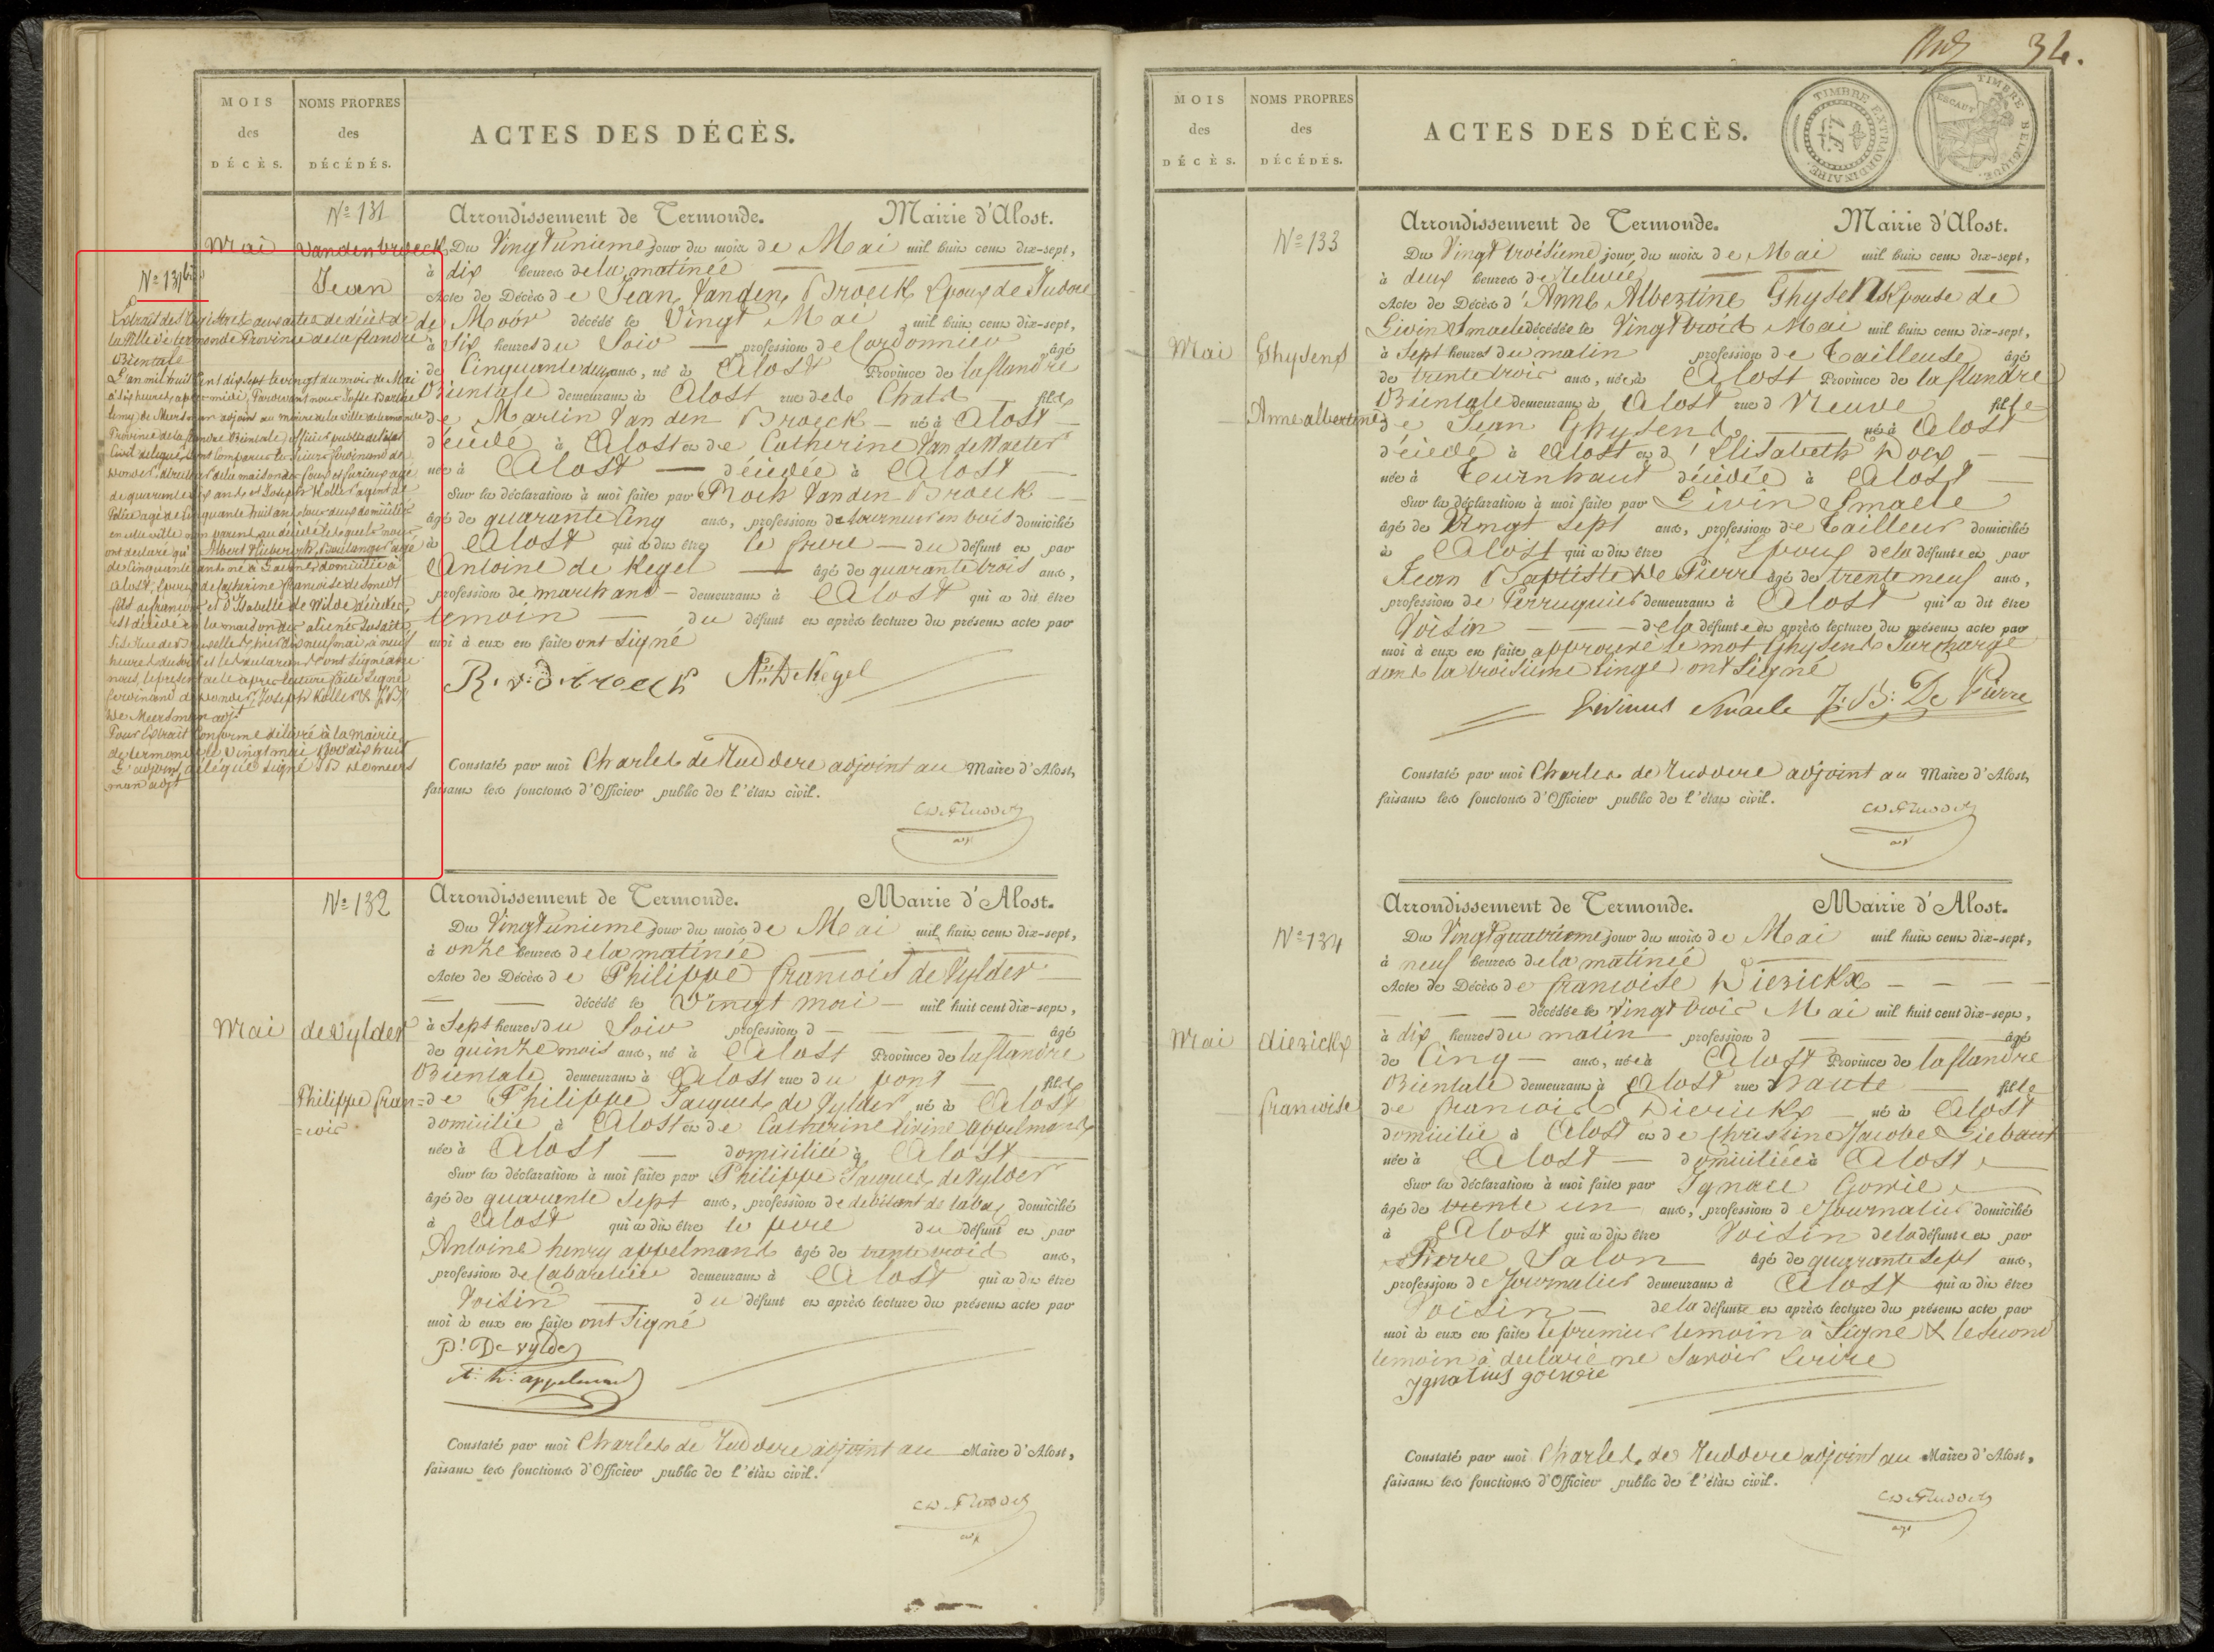 34.
MOIS
des
DÉCÈS.
NOMS PROPRES
des
DÉCÉDÉS.
ACTES DES DÉCÈS.
Nº 131
Arrondissement de Termonde. Mairie d'Alost.
Mai
Vandenbroeck
Jean
Du Vingt unieme jour du mois de Mai mil huit cent dix-sept,
à dix heures de la matinée
Acte de Décès de Jean Vanden Broeck Epoux de Judoce
de Moór décédé le Vingt Mai mil huit cent dix-sept,
à Six heures du Soir profession de Cordonnier âgé
de Cinquante deux ans, né à Alost Province de la flandre
Orientale demeurant à Alost rue de fils
de Martin Vanden Broeck né à Alost
décédé à Alost et de Catherine Van de Waeter
née à Alost décédée à Alost
Sur la déclaration à moi faite par Roch Vanden Broeck
âgé de quarante Cinq ans, profession de tourneur en bois domicilié
à Alost qui a dit être le frere du défunt et par
Antoine de Kegel âgé de quarante trois ans,
profession de marchand demeurant à Alost qui a dit être
temoin du défunt et après lecture du présent acte par
moi à eux en faite ont Signé
Constaté par moi Charles de Ruddere adjoint au Maire d'Alost,
faisant les fonctions d'Officier public de l'état civil.
Nº 131 bis
Extrait des Registres aux actes de décès de
la ville de termonde Province de la flandre
Orientale
L'an mil huit Cent dix Sept le vingt du mois de Mai
à Six heures après midi, Pardevant nous
de Meersman adjoint au maire de la ville de termonde
Province de la flandre Orientale officier public de l'état
Civil delegué ont Comparu le Sieur ferdinand de
de la maison des fous et furieux agé
de quarante ans et Joseph Koller agent de
Police agé de Cinquante huit ans tous deux domiciliés
en cette ville non parent au décédé lesquels nous
ont declaré qu'Albert Huberich, boulanger agé
de Cinquante ans né à domicilié à
Alost, Epoux de Catherine francoise de Smedt
fils de francois et d'Isabelle de Wilde décédés,
est décédé en la maison des aliénés Susdite
Sise Rue de Bruxelles hier dix neuf mai à neuf
heures du Soir et les declarants ont Signé avec
nous le present acte apres lecture faite Signé
ferdinand de Joseph Koller & J:B:
de Meersman adjt
Pour Extrait Conforme délivré à la mairie
de termonde le vingt mai
L'adjoint délégué Signé J B de meers
man adjt
Nº 132
Arrondissement de Termonde. Mairie d'Alost.
Mai
de Vylder
Philippe fran=
=cois
Du Vingt unieme jour du mois de Mai mil huit cent dix-sept,
à onze heures de la matinée
Acte de Décès de Philippe francois de Vylder
décédé le Vingt mai mil huit cent dix-sept,
à Sept heures du Soir profession d âgé
de quinze mois ans, né à Alost Province de la flandre
Orientale demeurant à Alost rue du pont fils
de Philippe Jacques de Vylder né à Alost
domicilié à Alost et de Catherine livine appelmans
née à Alost domiciliée à Alost
Sur la déclaration à moi faite par Philippe Jacques de Vylder
âgé de quarante Sept ans, profession de debitant de tabac domicilié
à Alost qui a dit être le pere du défunt et par
Antoine henry appelmans âgé de trente trois ans,
profession de Cabaretier demeurant à Alost qui a dit être
Voisin du défunt et après lecture du présent acte par
moi à eux en faite ont Signé
P: De vylder
A: h: appelmans
Constaté par moi Charles de Ruddere adjoint au Maire d'Alost,
faisant les fonctions d'Officier public de l'état civil.
MOIS
des
DÉCÈS.
NOMS PROPRES
des
DÉCÉDÉS.
ACTES DES DÉCÈS.
TIMBRE EXTRAORDINAIRE.
TIMBRE BELGIQUE.
ESCAUT
Nº 133
Arrondissement de Termonde. Mairie d'Alost.
Mai
Ghysens
Anne albertine
Du Vingt troisieme jour du mois de Mai mil huit cent dix-sept,
à deux heures de relevée
Acte de Décès d'Anne Albertine Ghysens Epouse de
Livin Smaele décédée le Vingt trois Mai mil huit cent dix-sept,
à Sept heures du matin profession de Tailleuse âgée
de trente trois ans, née à Alost Province de la flandre
Orientale demeurant à Alost rue Neuve fille
de Jean Ghysens né à Alost
décédé à Alost et d'Elisabeth Docx
née à Turnhaut décédée à Alost
Sur la déclaration à moi faite par Livin Smaele
âgé de Vingt Sept ans, profession de Tailleur domicilié
à Alost qui a dit être l'Epoux de la défunte et par
Jean Baptiste De Pierre âgé de trente neuf ans,
profession de Perruquier demeurant à Alost qui a dit être
Voisin de la défunte et après lecture du présent acte par
moi à eux en faite approuvé le mot Ghysens Surchargé
dans la troisieme linge ont Signé
Livinus Smaele J:B: De Pierre
Constaté par moi Charles de Ruddere adjoint au Maire d'Alost,
faisant les fonctions d'Officier public de l'état civil.
Nº 134
Arrondissement de Termonde. Mairie d'Alost.
Mai
dierickx
francoise
Du Vingt quatrieme jour du mois de Mai mil huit cent dix-sept,
à neuf heures de la matinée
Acte de Décès de francoise Dierickx
décédée le Vingt trois Mai mil huit cent dix-sept,
à dix heures du matin profession d âgé
de Cinq ans, née à Alost Province de la flandre
Orientale demeurant à Alost rue haute fille
de francois Dierickx né à Alost
domicilié à Alost et de Christine Jacobe Liebaut
née à Alost domiciliée à Alost
Sur la déclaration à moi faite par Ignace Goerie
âgé de trente un ans, profession de Journalier domicilié
à Alost qui a dit être Voisin de la défunte et par
Pierre Salon âgé de quarante Sept ans,
profession de Journalier demeurant à Alost qui a dit être
Voisin de la défunte et après lecture du présent acte par
moi à eux en faite le premier temoin à Signé & le Second
temoin à declaré ne Savoir Ecrire
Constaté par moi Charles de Ruddere adjoint au Maire d'Alost,
faisant les fonctions d'Officier public de l'état civil.